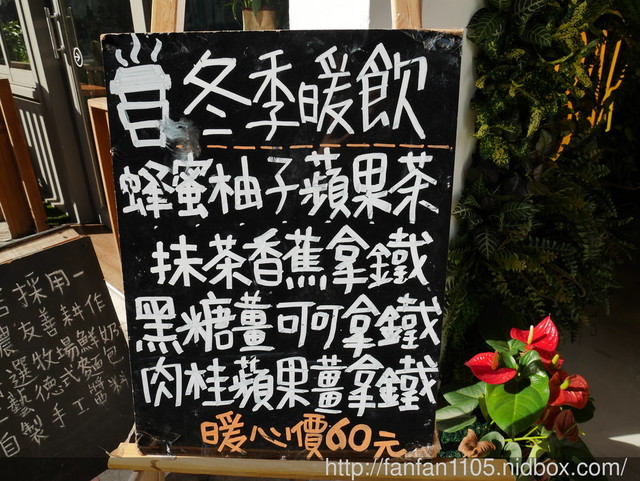 冬季暖飲
蜂蜜柚子蘋果茶
抹茶香蕉拿鐵
黑糖薑可可拿鐵
肉桂蘋果薑拿鐵
暖心價60元
採用一
農友善耕作
選牧場鮮奶
藝德式麵包
自製手工醬料
http://fanfan1105.nidbox.com/